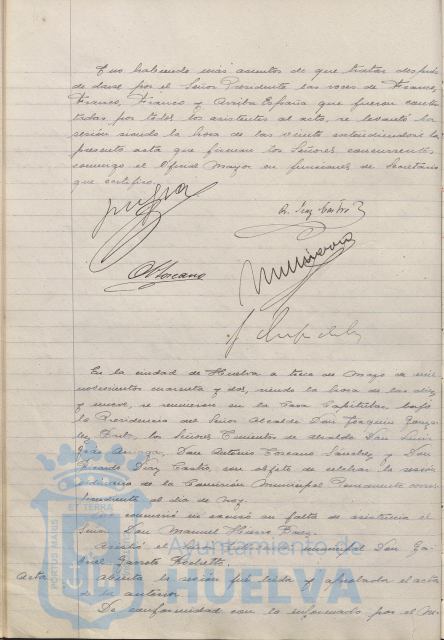 Y no habiendo más asuntos de que tratar después
de darse por el Señor Presidente las voces de Franco,
Franco, Franco y Arriba España que fueron contes-
tadas por todos los asistentes al acto, se levantó la
sesión siendo la hora de las veinte extendiéndose la
presente acta que firman los Señores concurrentes
conmigo el Oficial Mayor en funciones de Secretario
que certifico.
R. Díaz Castro
A Toscano
En la ciudad de Huelva a trece de Mayo de mil
novecientos cuarenta y dos, siendo la hora de las diez
y nueve, se reunieron en la Casa Capitular bajo
la Presidencia del Señor Alcalde Don Joaquín Gonzá-
lez, los Señores Tenientes de Alcalde Don Luis
Don Antonio Toscano Sánchez y Don
Ricardo Díaz Castro, con objeto de celebrar la sesión
ordinaria de la Comisión Municipal Permanente corres-
pondiente al día de hoy.
su falta de asistencia el
Señor Don Manuel
Asistió el Señor Municipal Don Ga-
briel Garrote
Acta. Abierta la sesión fué leída y aprobada el acta
de la anterior.
De conformidad con lo informado por el
PORTUS MARIS ET TERRAE
Ayuntamiento de
HUELVA